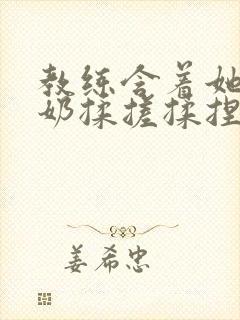 教练含着她
奶揉搓揉捏
姜希忠